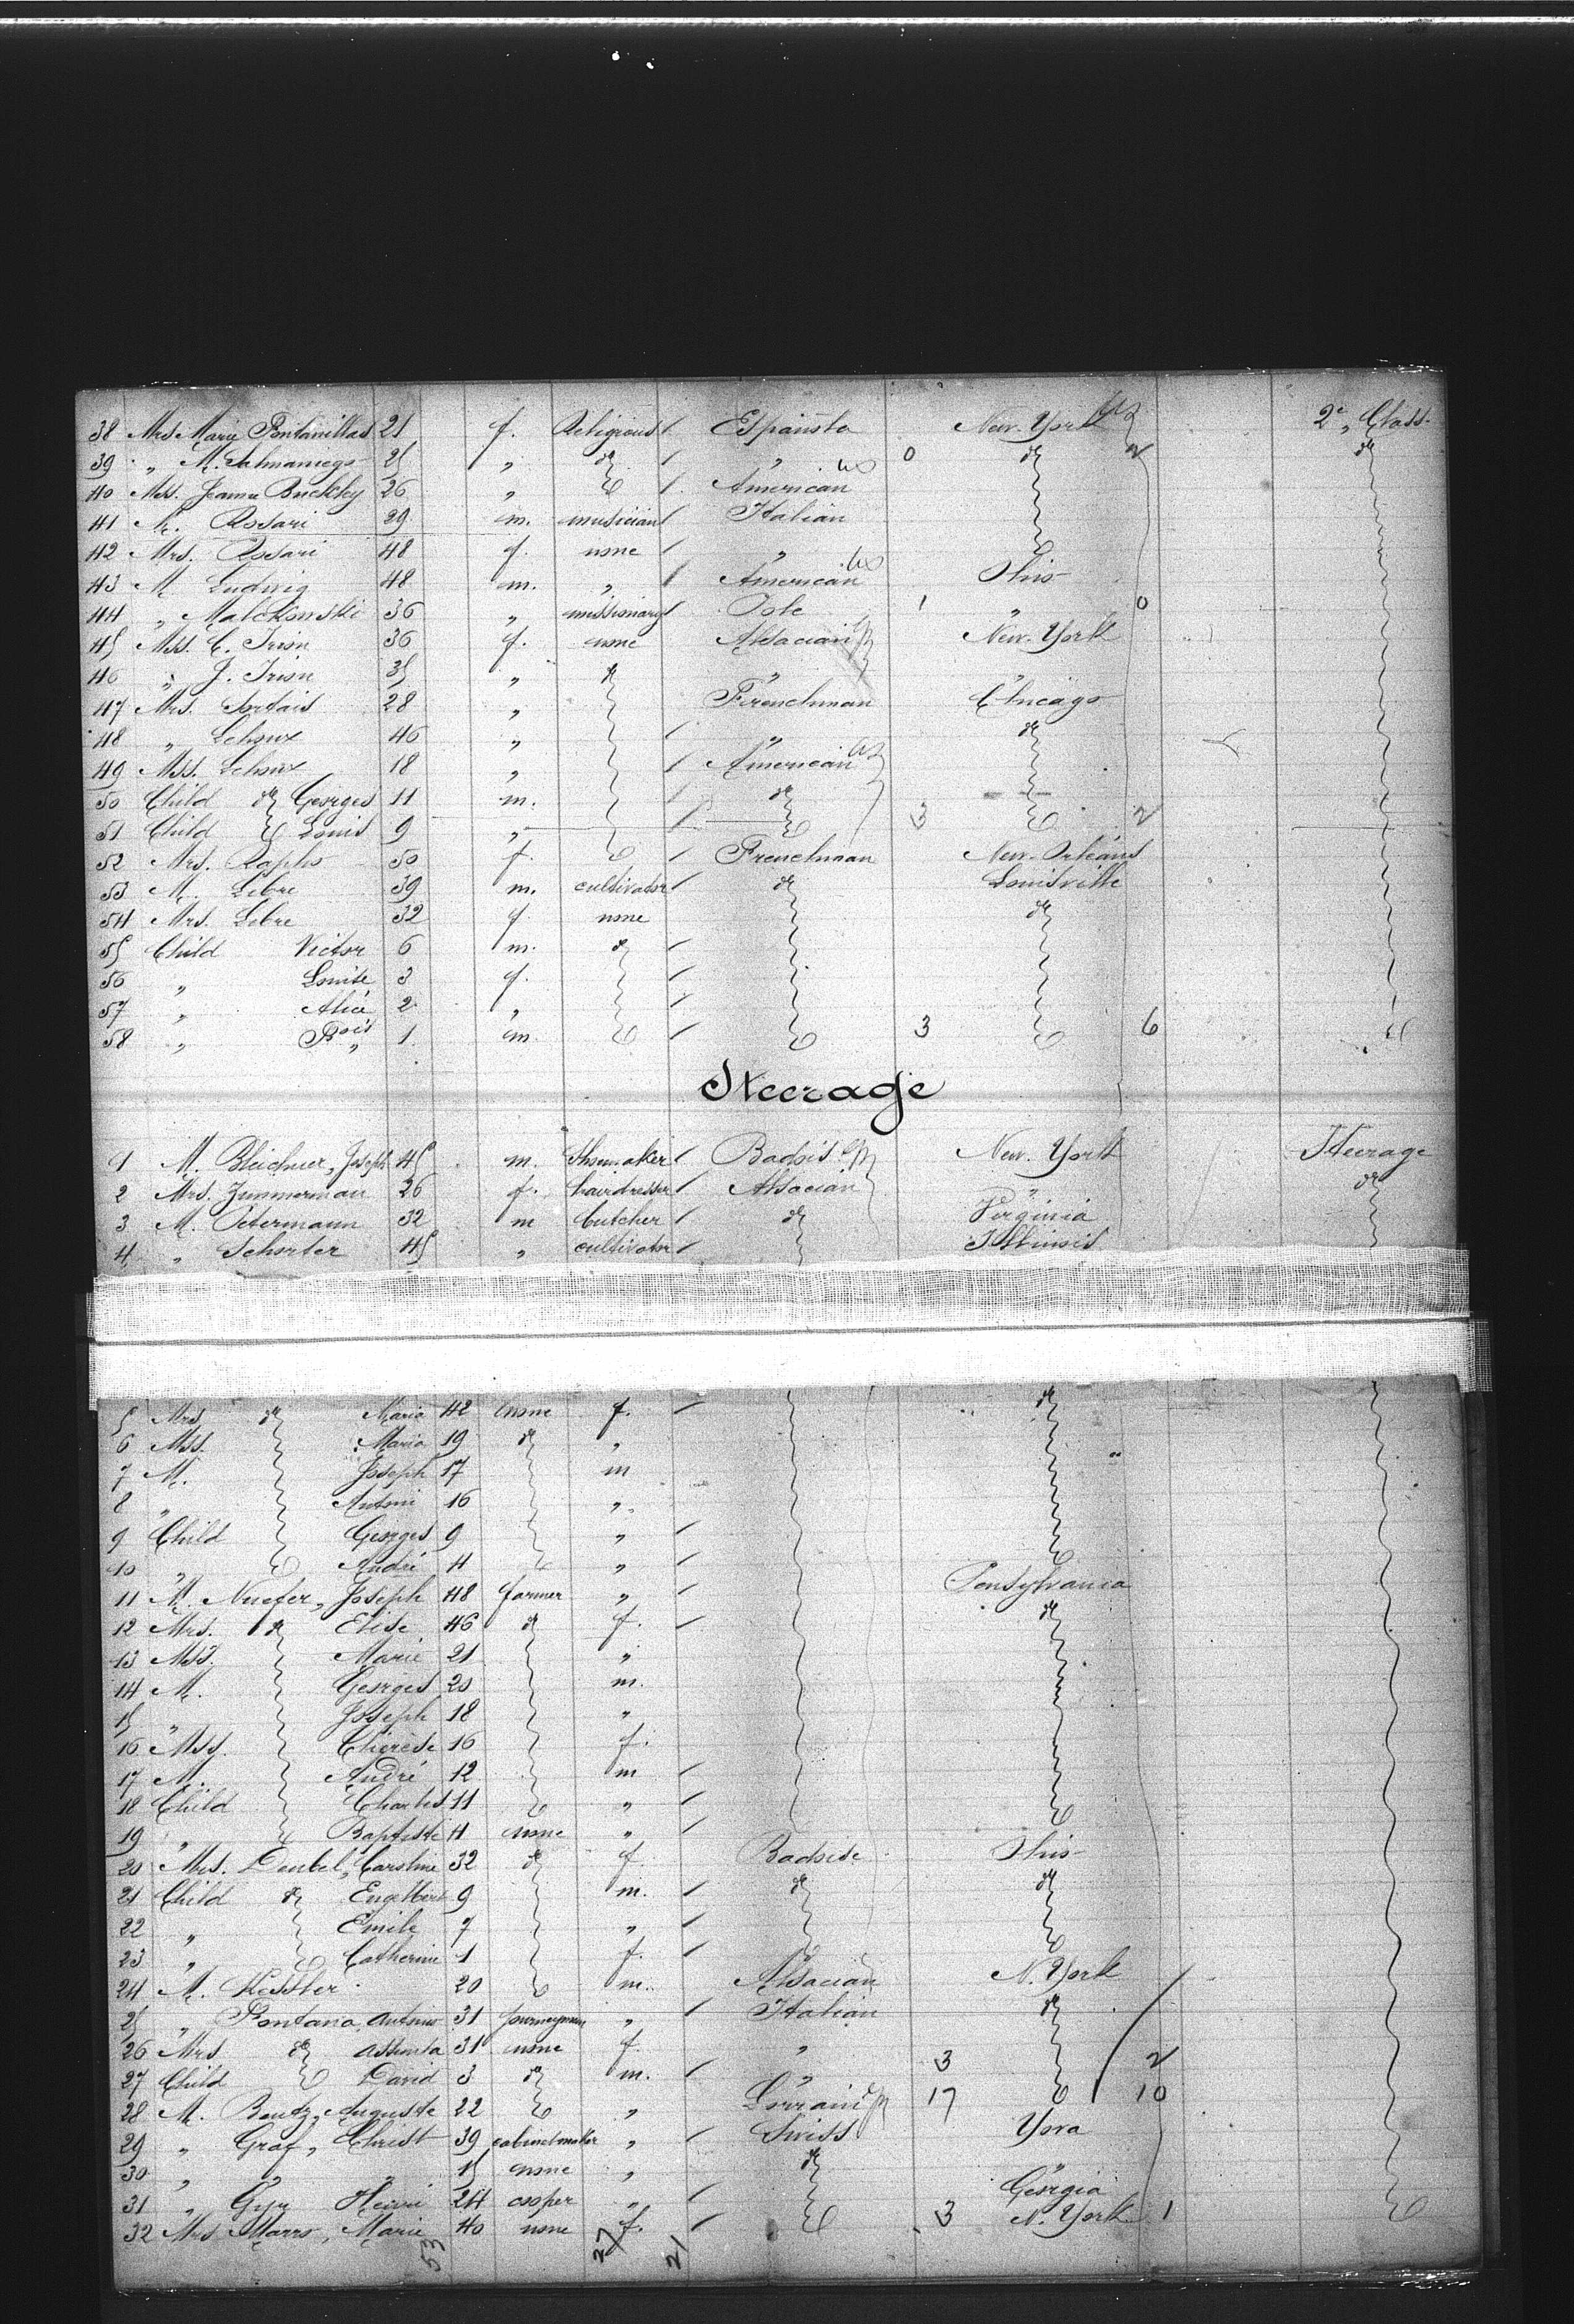 38 Mrs Marie Fontanillas 21 f. Religious Española New-York 2e Class.
39 " M. Salmaniego 25 " do " 0 do 2 do
40 Mss. Jeanne Buckley 26 " American
41 M. Rosari 29 m. musician Italian
42 Mrs. Rosari 48 f. none "
43 M. Ludwig 48 m. " American Ohio
44 " Malckonski 36 " missionary Pole 1 " 0
45 Mss. C. Irion 36 f. none Alsacian New-York
46 " J. Irion 35 " do "
47 Mrs. 28 " Frenchman Chicago
48 " Lehoux 46 " " do
49 Mss. Lehoux 18 " American
50 Child do Georges 11 m. do
51 Child Louis 9 " 3 2
52 Mrs. Rapho 50 f. Frenchman New-Orléans
53 M. Lebre 39 m. cultivator do Louisville
54 Mrs. Lebre 32 f. none do
55 Child Victor 6 m. do
56 " Louise 3 f.
57 " Alice 2 "
58 " Fois 1 m. 3 6
Steerage
1 M. Bleichner, Joseph 45 m. Shoemaker Badois New-York Steerage
2 Mrs. Zimmerman 26 f. hairdresser Alsacian " do
3 M. Petermann 32 m butcher do Virginia
4 " Schorter 45 " cultivator Illinois
5 Mrs do Maria 42 none f. do
6 Mss. Maria 19 do "
7 M. Joseph 17 m
8 " Antoni 16 "
9 Child Georges 9 "
10 " André 4 "
11 M. Nuefer, Joseph 48 farmer " Pensylvania
12 Mrs. do Elise 46 do f. do
13 Mss. Marie 21 "
14 M. Georges 20 m.
15 " Joseph 18 "
16 Mss. Thérèse 16 f.
17 M. André 12 m
18 Child Charles 11 "
19 " Baptiste 4 none "
20 Mrs. Deubel, Caroline 32 do f. Badoise Ohio
21 Child do Engelbert 9 m. do do
22 " Emile 7 "
23 " Catherine 1 f.
24 M. Kessler 20 m. Alsacian N. York
25 " Fontana, Antonio 31 journeyman " Italian do
26 Mrs do Assunta 31 none f. "
27 Child David 3 do m. " 3 2
28 M. Bentz, Auguste 22 " Lorrain 17 10
29 " Graf, Christ 39 cabinetmaker " Swiss Yova
30 " " " 15 none " do "
31 " Gyr Henri 24 cooper " Georgia
32 Mrs Marro, Marie 40 none f. 3 N. York 1
53 27 21